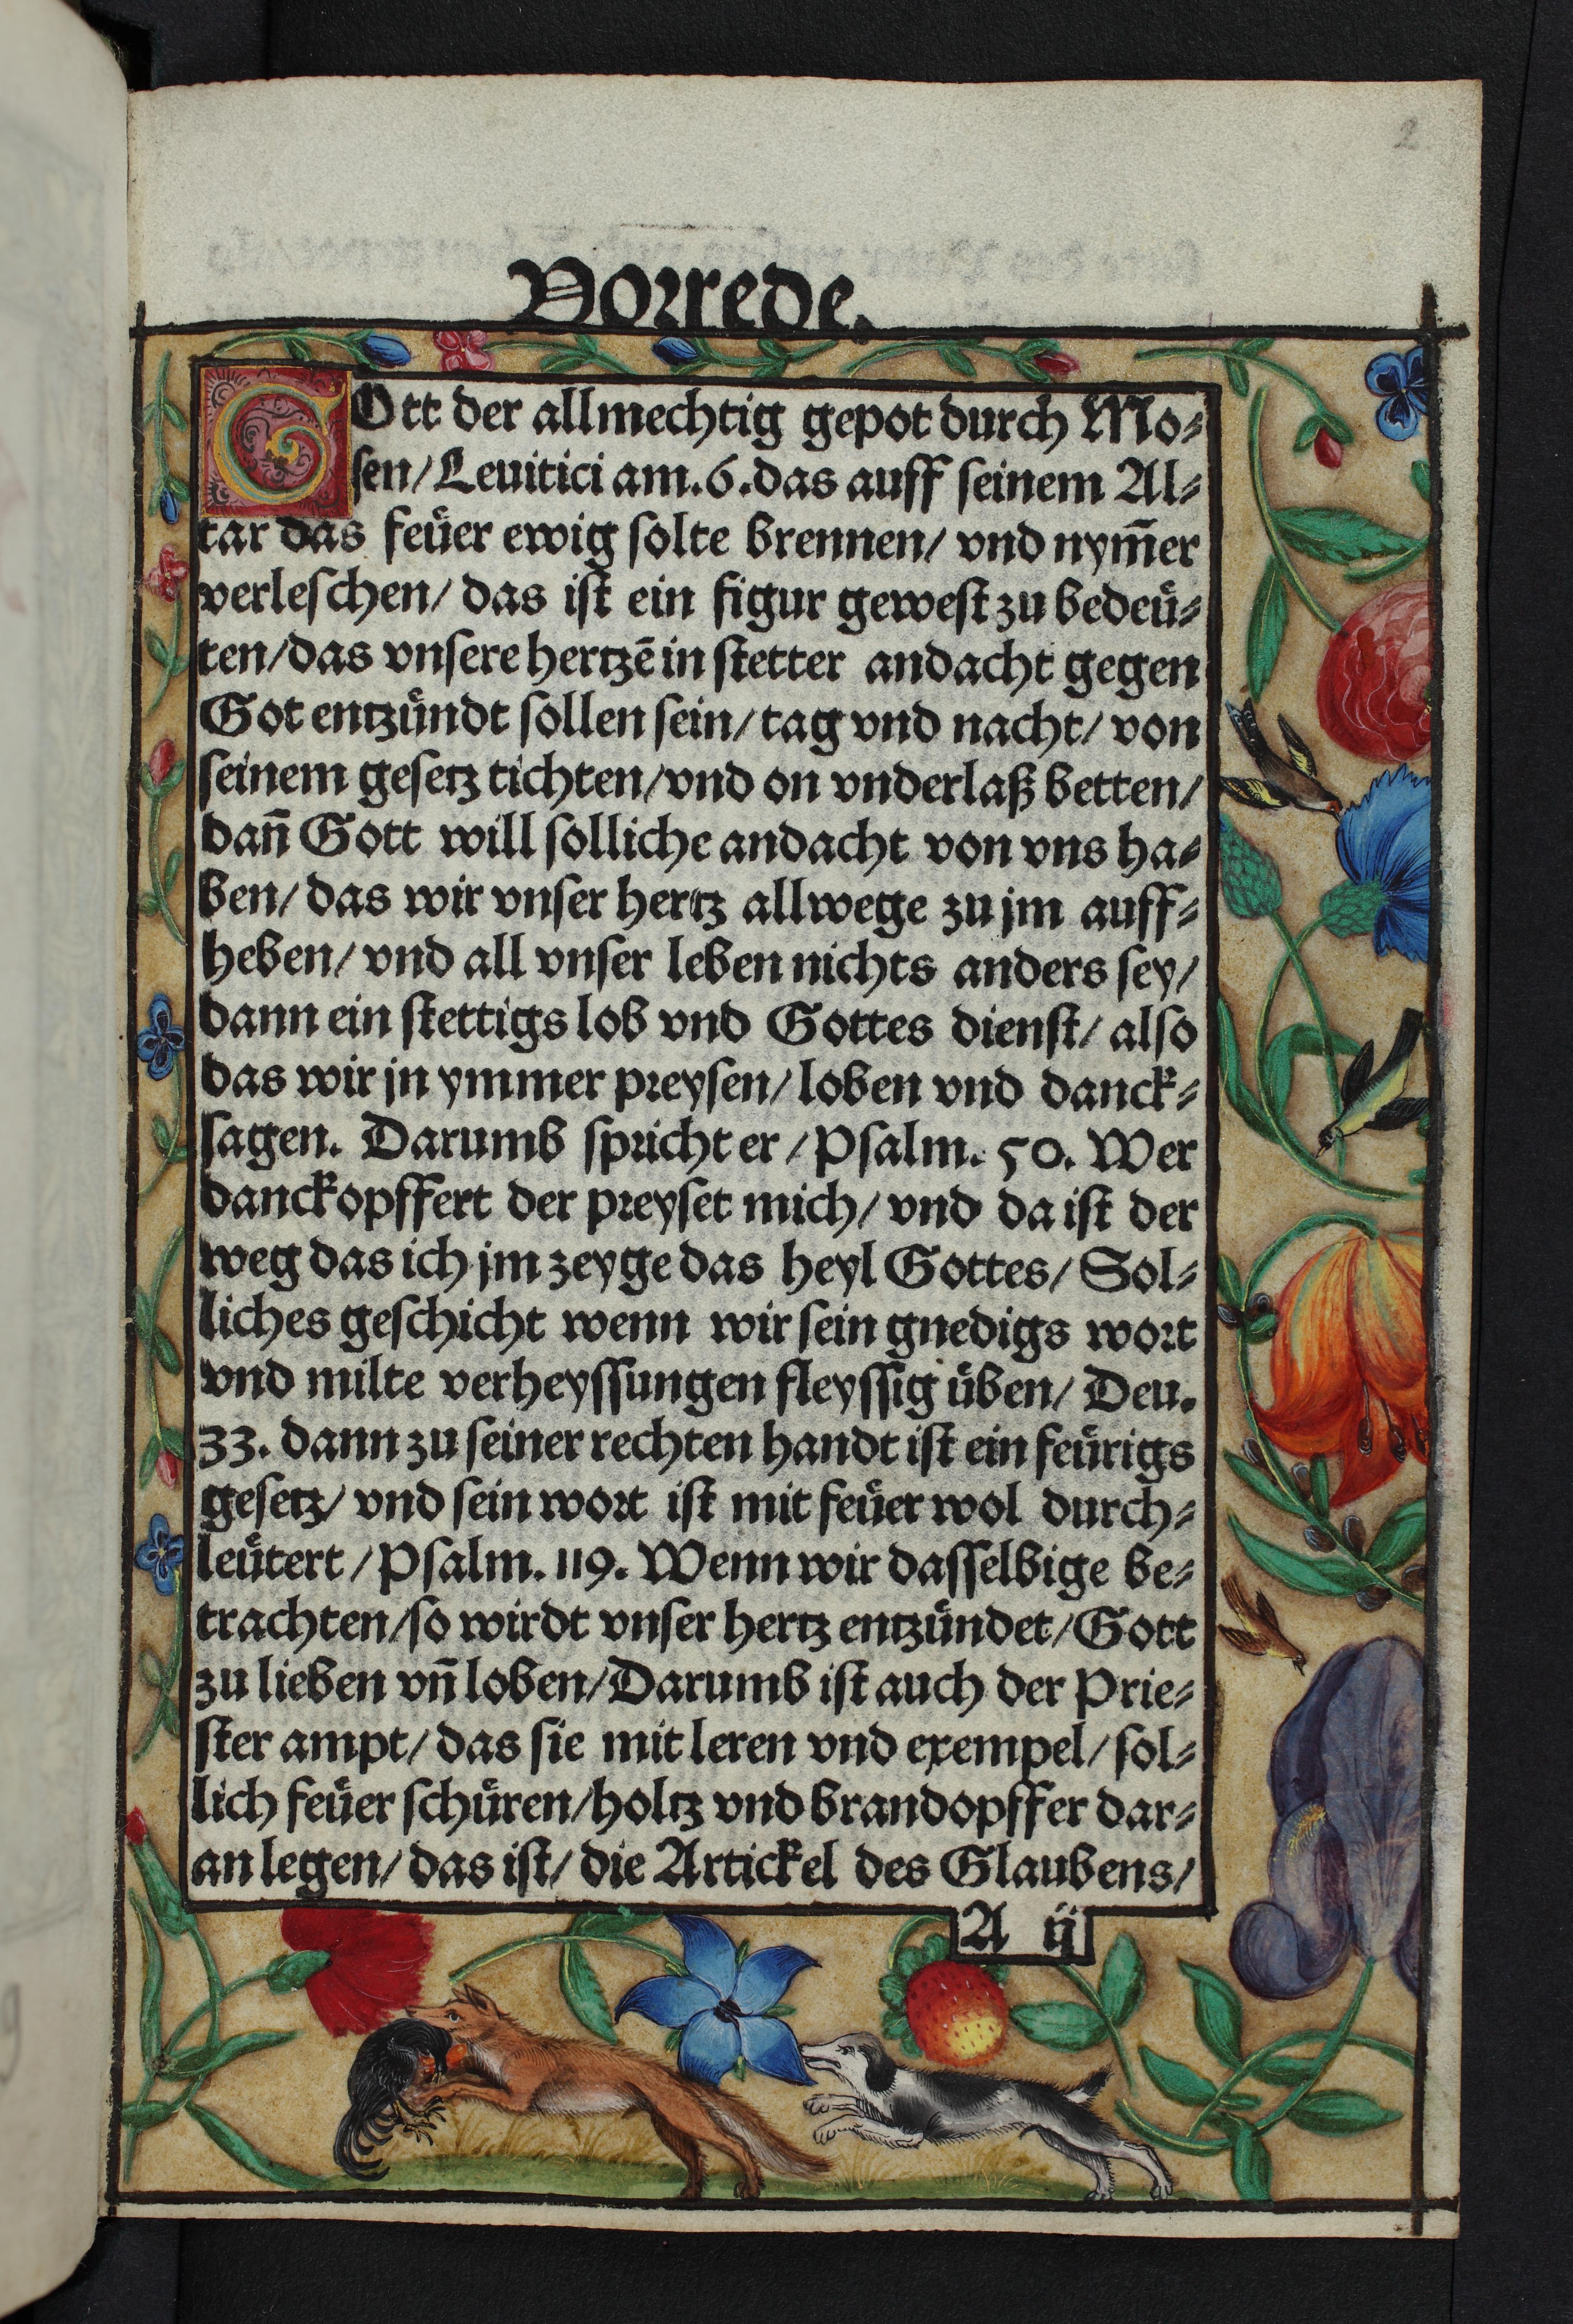 2
Vorrede.
GOtt der allmechtig gepot durch Mo⸗
sen/ Leuitici am. 6. das auff seinem Al⸗
tar das feüer ewig solte brennen/ vnd nym̄er
verleschen/ das ist ein figur gewest zu bedeü⸗
ten/ das vnsere hertzē in stetter andacht gegen
Got entzündt sollen sein/ tag vnd nacht/ von
seinem gesetz tichten/ vnd on vnderlaß betten/
dañ Gott will solliche andacht von vns ha⸗
ben/ das wir vnser hertz allwege zu jm auff⸗
heben/ vnd all vnser leben nichts anders sey/
dann ein stettigs lob vnd Gottes dienst/ also
das wir jn ymmer preysen/ loben vnd danck⸗
sagen. Darumb spricht er/ Psalm. 50. Wer
danckopffert der preyset mich/ vnd da ist der
weg das ich jm zeyge das heyl Gottes/ Sol⸗
liches geschicht wenn wir sein gnedigs wort
vnd milte verheyssungen fleyssig üben/ Deu.
33. dann zu seiner rechten handt ist ein feürigs
gesetz/ vnd sein wort ist mit feüer wol durch⸗
leütert/ Psalm. 119. Wenn wir dasselbige be⸗
trachten/ so wirdt vnser hertz entzündet/ Gott
zu lieben vñ loben/ Darumb ist auch der Prie⸗
ster ampt/ das sie mit leren vnd exempel/ sol⸗
lich feüer schüren/ holtz vnd brandopffer dar⸗
an legen/ das ist/ die Artickel des Glaubens/
A ij